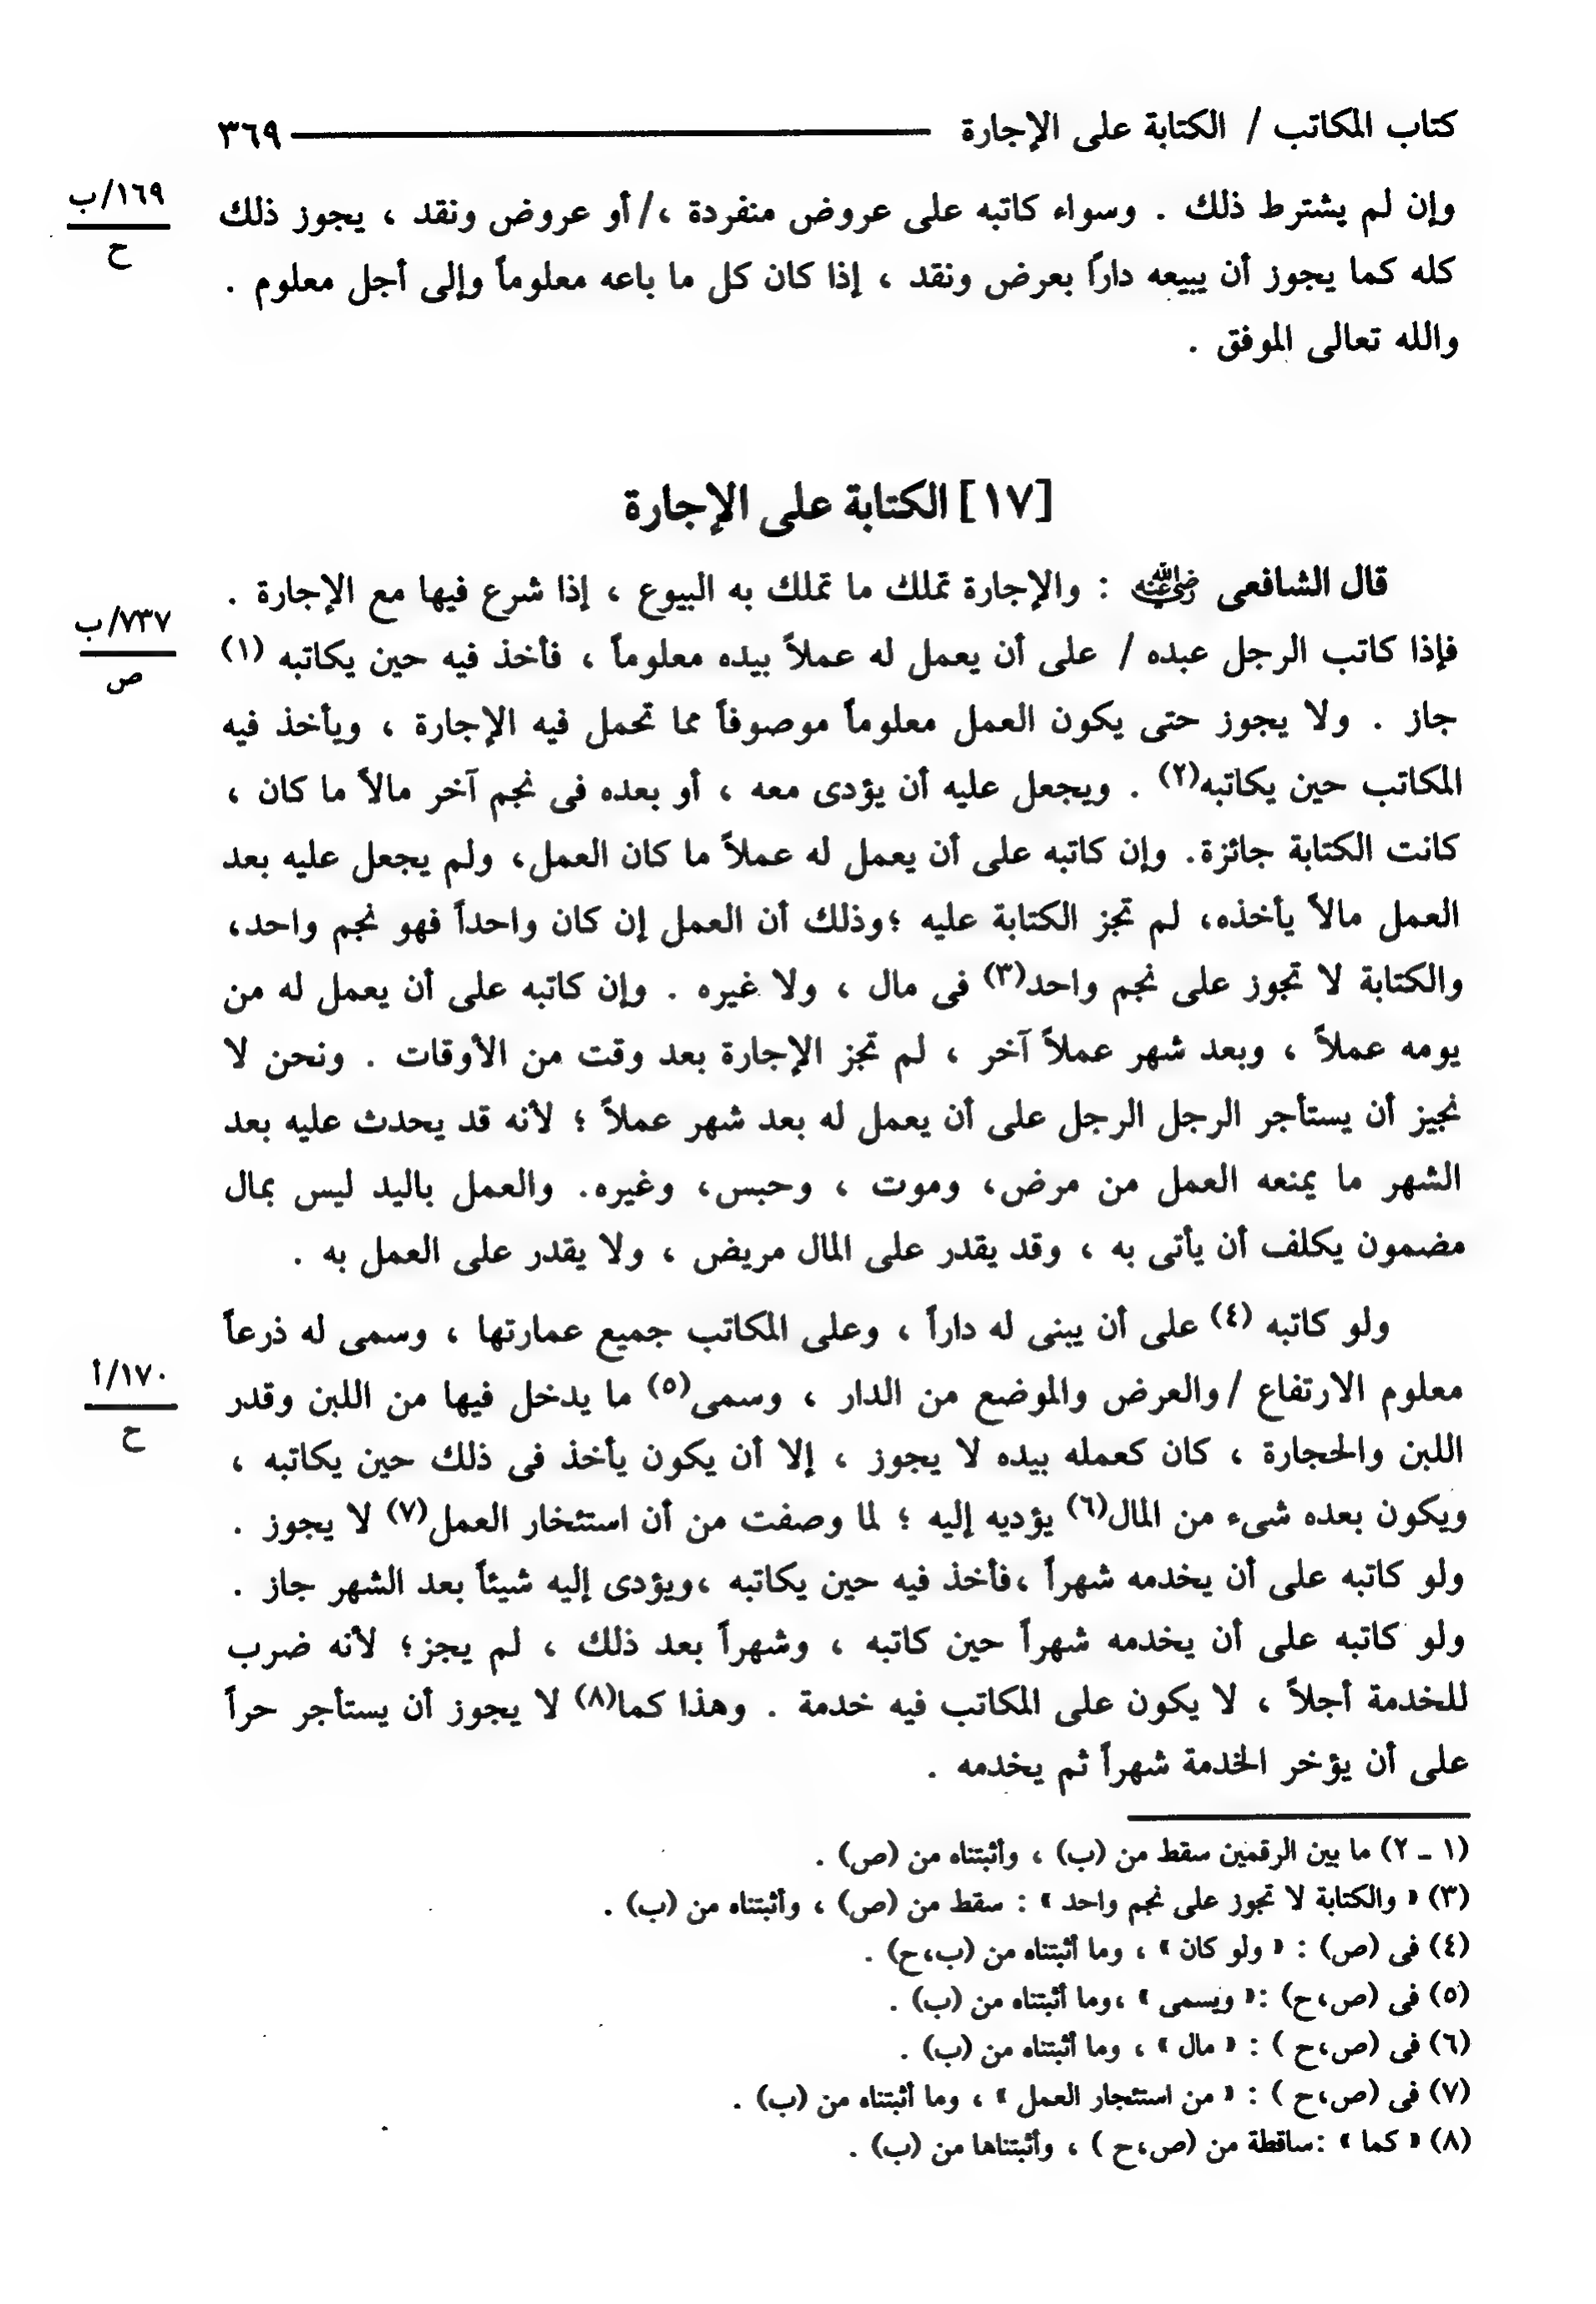 كتاب المكاتب / الكتابة على الإجارة ــــــ ٣٦٩
١٦٩/ب
ح
وإن لم يشترط ذلك . وسواء كاتبه على عروض منفردة ،/ أو عروض ونقد ، يجوز ذلك
كله كما يجوز أن يبيعه داراً بعرض ونقد ، إذا كان كل ما باعه معلوماً وإلى أجل معلوم .
والله تعالى الموفق .
[١٧] الكتابة على الإجارة
قال الشافعى رضي الله عنه : والإجارة تملك ما تملك به البيوع ، إذا شرع فيها مع الإجارة .
٧٣٧/ب
ص
فإذا كاتب الرجل عبده / على أن يعمل له عملاً بيده معلوماً ، فأخذ فيه حين يكاتبه (١)
جاز . ولا يجوز حتى يكون العمل معلوماً موصوفاً مما تحمل فيه الإجارة ، ويأخذ فيه
المكاتب حين يكاتبه(٢) . ويجعل عليه أن يؤدى معه ، أو بعده فى نجم آخر مالاً ما كان ،
كانت الكتابة جائزة. وإن كاتبه على أن يعمل له عملاً ما كان العمل، ولم يجعل عليه بعد
العمل مالاً يأخذه، لم تجز الكتابة عليه ؛وذلك أن العمل إن كان واحداً فهو نجم واحد،
والكتابة لا تجوز على نجم واحد(٣) فى مال ، ولا غيره . وإن كاتبه على أن يعمل له من
يومه عملاً ، وبعد شهر عملاً آخر ، لم تجز الإجارة بعد وقت من الأوقات . ونحن لا
نجيز أن يستأجر الرجل الرجل على أن يعمل له بعد شهر عملاً ؛ لأنه قد يحدث عليه بعد
الشهر ما يمنعه العمل من مرض، وموت ، وحبس، وغيره. والعمل باليد ليس بمال
مضمون يكلف أن يأتى به ، وقد يقدر على المال مريض ، ولا يقدر على العمل به .
ولو كاتبه (٤) على أن يبنى له داراً ، وعلى المكاتب جميع عمارتها ، وسمى له ذرعاً
١٧٠/أ
ح
معلوم الارتفاع /والعرض والموضع من الدار ، وسمى(٥) ما يدخل فيها من اللبن وقدر
اللبن والحجارة ، كان كعمله بيده لا يجوز ، إلا أن يكون يأخذ فى ذلك حين يكاتبه ،
ويكون بعده شىء من المال(٦) يؤديه إليه ؛ لما وصفت من أن استئخار العمل(٧) لا يجوز .
ولو كاتبه على أن يخدمه شهراً ،فأخذ فيه حين يكاتبه ،ويؤدى إليه شيئاً بعد الشهر جاز .
ولو كاتبه على أن يخدمه شهراً حين كاتبه ، وشهراً بعد ذلك ، لم يجز؛ لأنه ضرب
للخدمة أجلاً ، لا يكون على المكاتب فيه خدمة . وهذا كما(٨) لا يجوز أن يستأجر حراً
على أن يؤخر الخدمة شهراً ثم يخدمه .
(١ ـ ٢) ما بين الرقمين سقط من (ب) ، وأثبتناه من (ص) .
(٣) « والكتابة لا تجوز على نجم واحد » : سقط من (ص) ، وأثبتناه من (ب) .
(٤) فى (ص) : « ولو كان » ، وما أثبتناه من (ب،ح) .
(٥) فى (ص،ح) :« ويسمى » ،وما أثبتناه من (ب) .
(٦) فى (ص،ح ) : « مال » ، وما أثبتناه من (ب) .
(٧) فى (ص،ح ) : « من استئجار العمل » ، وما أثبتناه من (ب) .
(٨) « كما » :ساقطة من (ص،ح ) ، وأثبتناها من (ب) .